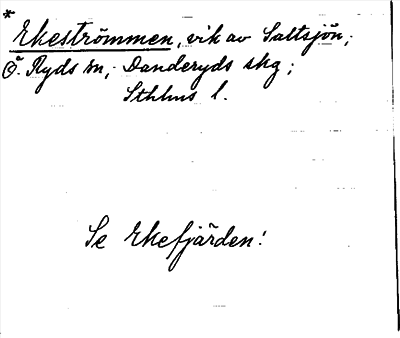 *
Ekeströmmen, vik av Saltsjön,
Ö. Ryds sn, Danderyds skg;
Sthlms l.
Se Ekefjärden!